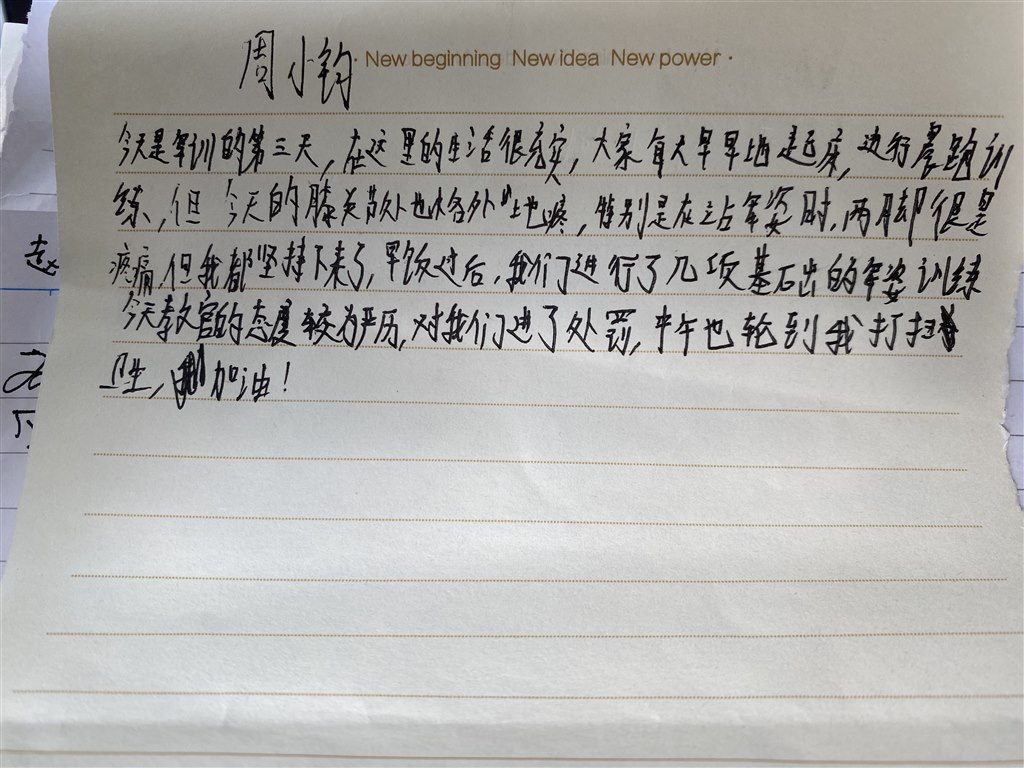 周小钧 · New beginning | New idea | New power ·
今天是军训的第三天，在这里的生活很充实，大家每天早早地起床，进行晨跑训
练，但今天的膝关节处也格外地疼，特别是在站军姿时，两脚很是
疼痛，但我都坚持下来了，早饭过后，我们进行了几项基础的军姿训练
今天教官的态度较为严历，对我们进了处罚，中午也轮到我打扫
卫生，加油！